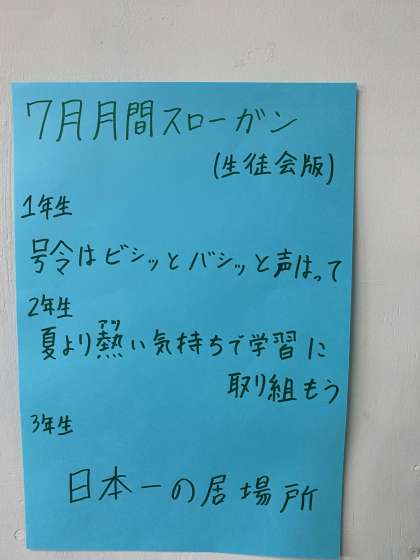 7月月間スローガン
(生徒会版)
1年生
号令はビシッとバシッと声はって
2年生
アツ
夏より熱い気持ちで学習に
取り組もう
3年生
日本一の居場所